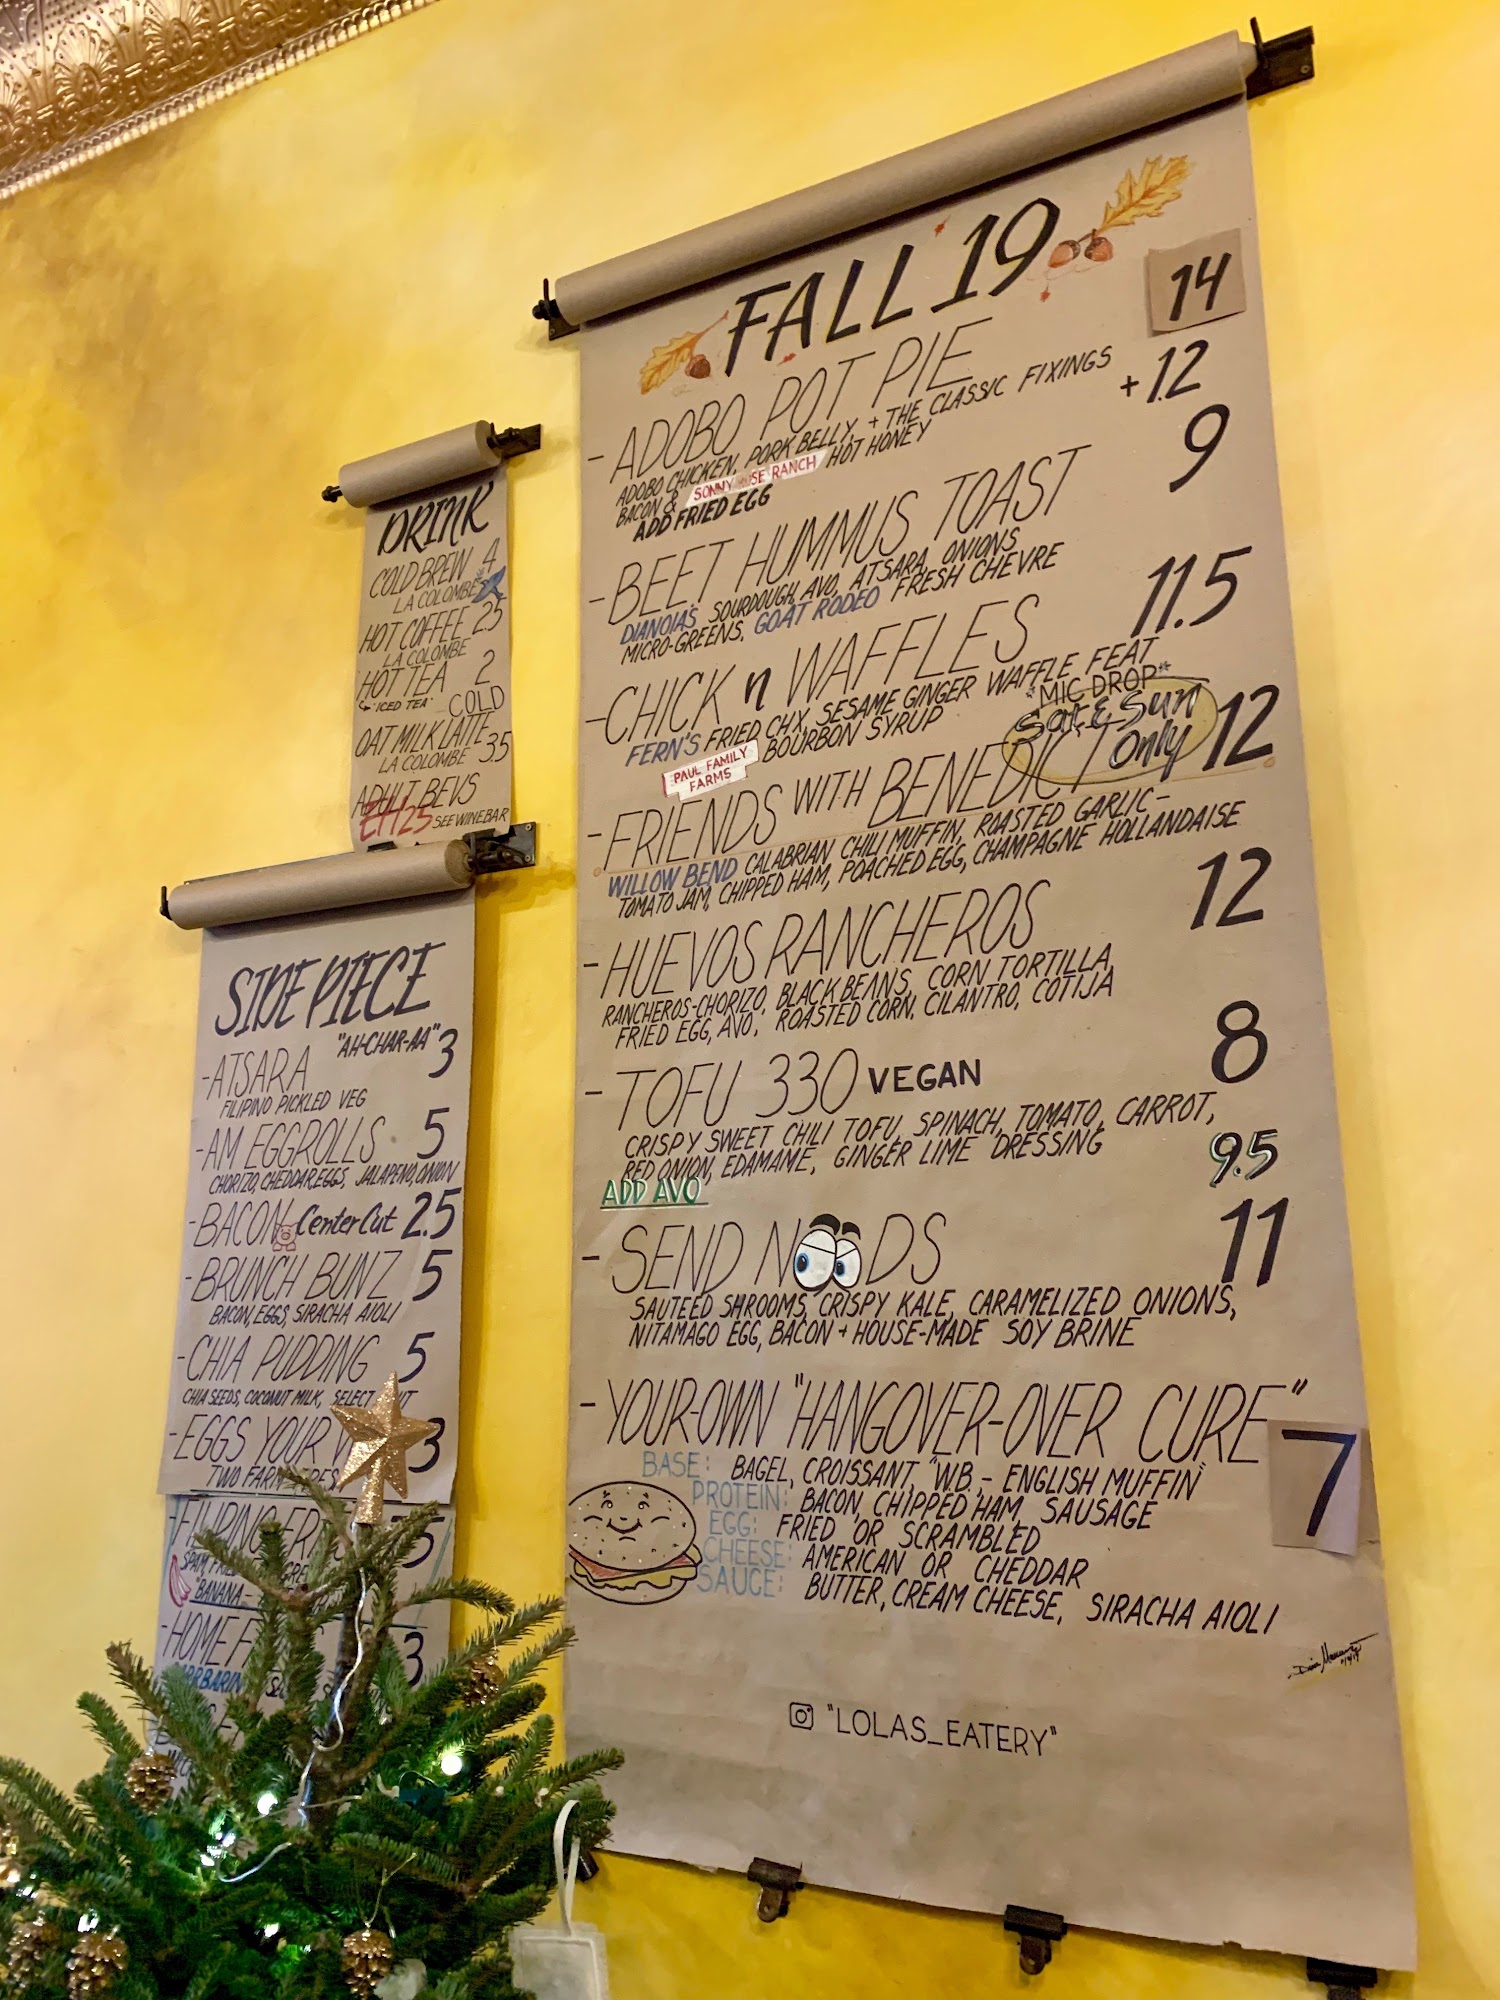 FALL 19
- ADOBO POT PIE 14
ADOBO CHICKEN, PORK BELLY, + THE CLASSIC FIXINGS
BACON & SONNY RANCH HOT HONEY
ADD FRIED EGG +1.2
- BEET HUMMUS TOAST 9
DIANOIA'S SOURDOUGH, AVO, ATSARA, ONIONS
MICRO-GREENS, GOAT RODEO FRESH CHEVRE
- CHICK n WAFFLES 11.5
FERN'S FRIED CHX, SESAME GINGER WAFFLE FEAT
PAUL FAMILY FARMS BOURBON SYRUP "MIC DROP"
Sat & Sun Only
- FRIENDS WITH BENEDICT 12
WILLOW BEND CALABRIAN CHILI MUFFIN, ROASTED GARLIC-
TOMATO JAM, CHIPPED HAM, POACHED EGG, CHAMPAGNE HOLLANDAISE
- HUEVOS RANCHEROS 12
RANCHEROS-CHORIZO, BLACK BEANS, CORN TORTILLA,
FRIED EGG, AVO, ROASTED CORN, CILANTRO, COTIJA
- TOFU 330 VEGAN 8
CRISPY SWEET CHILI TOFU, SPINACH, TOMATO, CARROT,
RED ONION, EDAMAME, GINGER LIME DRESSING
ADD AVO 9.5
- SEND NOODS 11
SAUTEED SHROOMS, CRISPY KALE, CARAMELIZED ONIONS,
NITAMAGO EGG, BACON + HOUSE-MADE SOY BRINE
- YOUR-OWN "HANGOVER-OVER CURE" 7
BASE: BAGEL, CROISSANT, "W.B. - ENGLISH MUFFIN"
PROTEIN: BACON, CHIPPED HAM, SAUSAGE
EGG: FRIED OR SCRAMBLED
CHEESE: AMERICAN OR CHEDDAR
SAUCE: BUTTER, CREAM CHEESE, SIRACHA AIOLI
"LOLAS_EATERY"
DRINK
COLD BREW 4
LA COLOMBE
HOT COFFEE 2.5
LA COLOMBE
HOT TEA 2
"ICED TEA" COLD
OAT MILK LATTE
LA COLOMBE 3.5
ADULT BEVS
SEE WINE BAR
SIDE PIECE
- ATSARA "AH-CHAR-AA" 3
FILIPINO PICKLED VEG
- AM EGGROLLS 5
CHORIZO, CHEDDAR, EGGS, JALAPENO, ONION
- BACON Center Cut 2.5
- BRUNCH BUNZ 5
BACON, EGGS, SIRACHA AIOLI
- CHIA PUDDING 5
CHIA SEEDS, COCONUT MILK, SELECT
- EGGS YOUR 3
TWO FARM
- FILIPINO 5
SPAM,
"BANANA-
- HOME 3